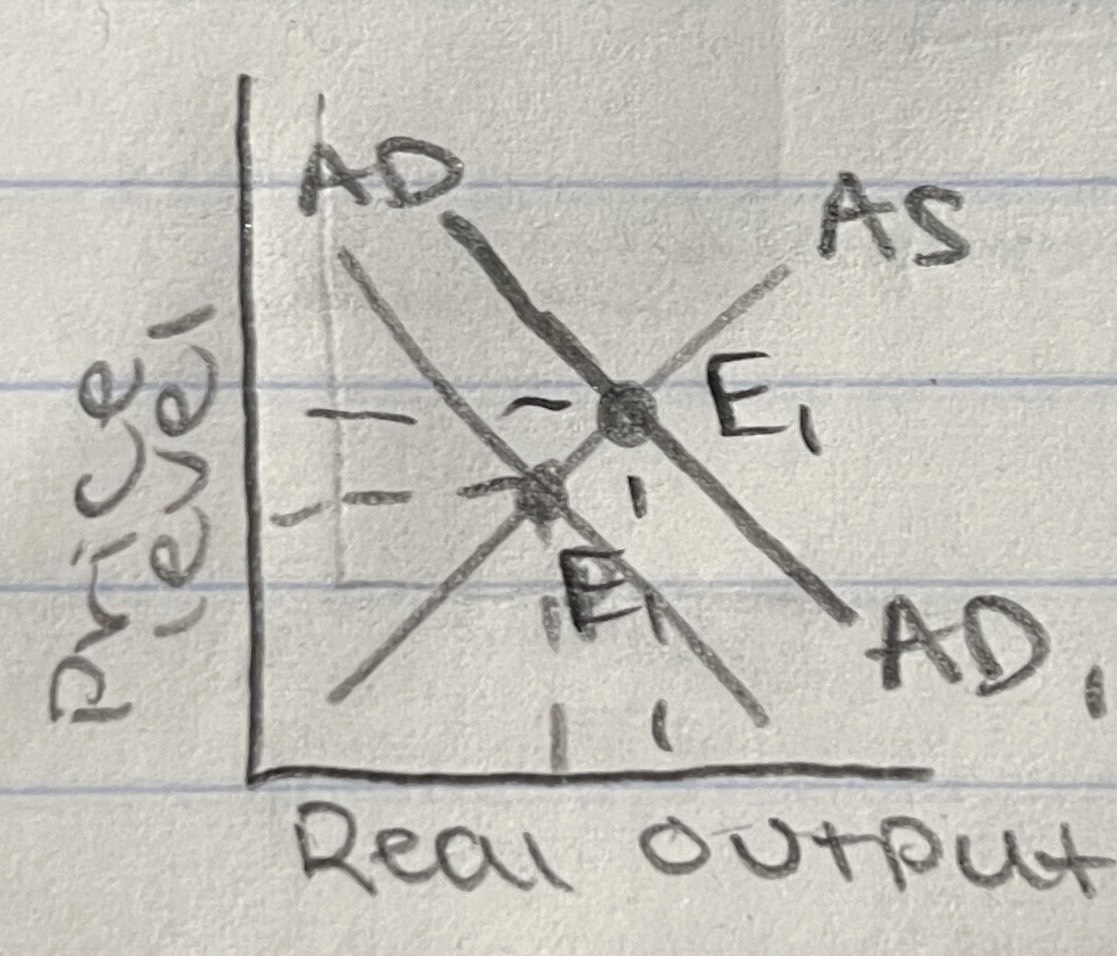 AD
AS
E1
E1
AD1
Price
level
Real output